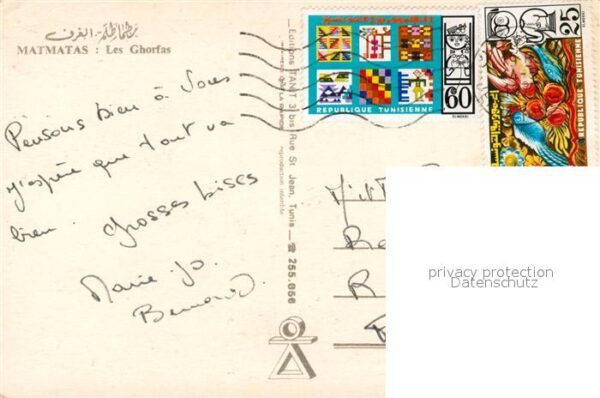 مطماطة - الغرف
MATMATAS : Les Ghorfas
Pensons bien à Vous
J'espère que tout va
bien.
Grosses bises
Marie-Jo
Bernard
Editions TANIT 3, bis Rue St Jean, Tunis — ☎ 255.656
reproduction interdite
60
REPUBLIQUE TUNISIENNE
25
REPUBLIQUE TUNISIENNE
privacy protection
Datenschutz